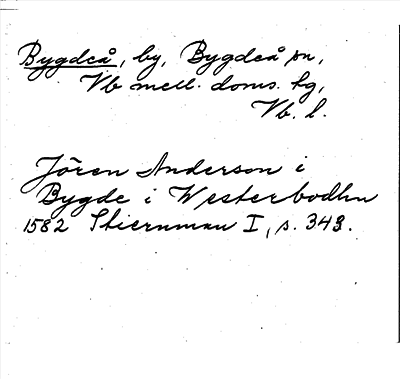 Bygdeå, by, Bygdeå sn,
Vb mell. doms. hg,
Vb. l.
Jören Anderson i
Bygde i Westerbodhn
1582 Stiernman I, s. 343.